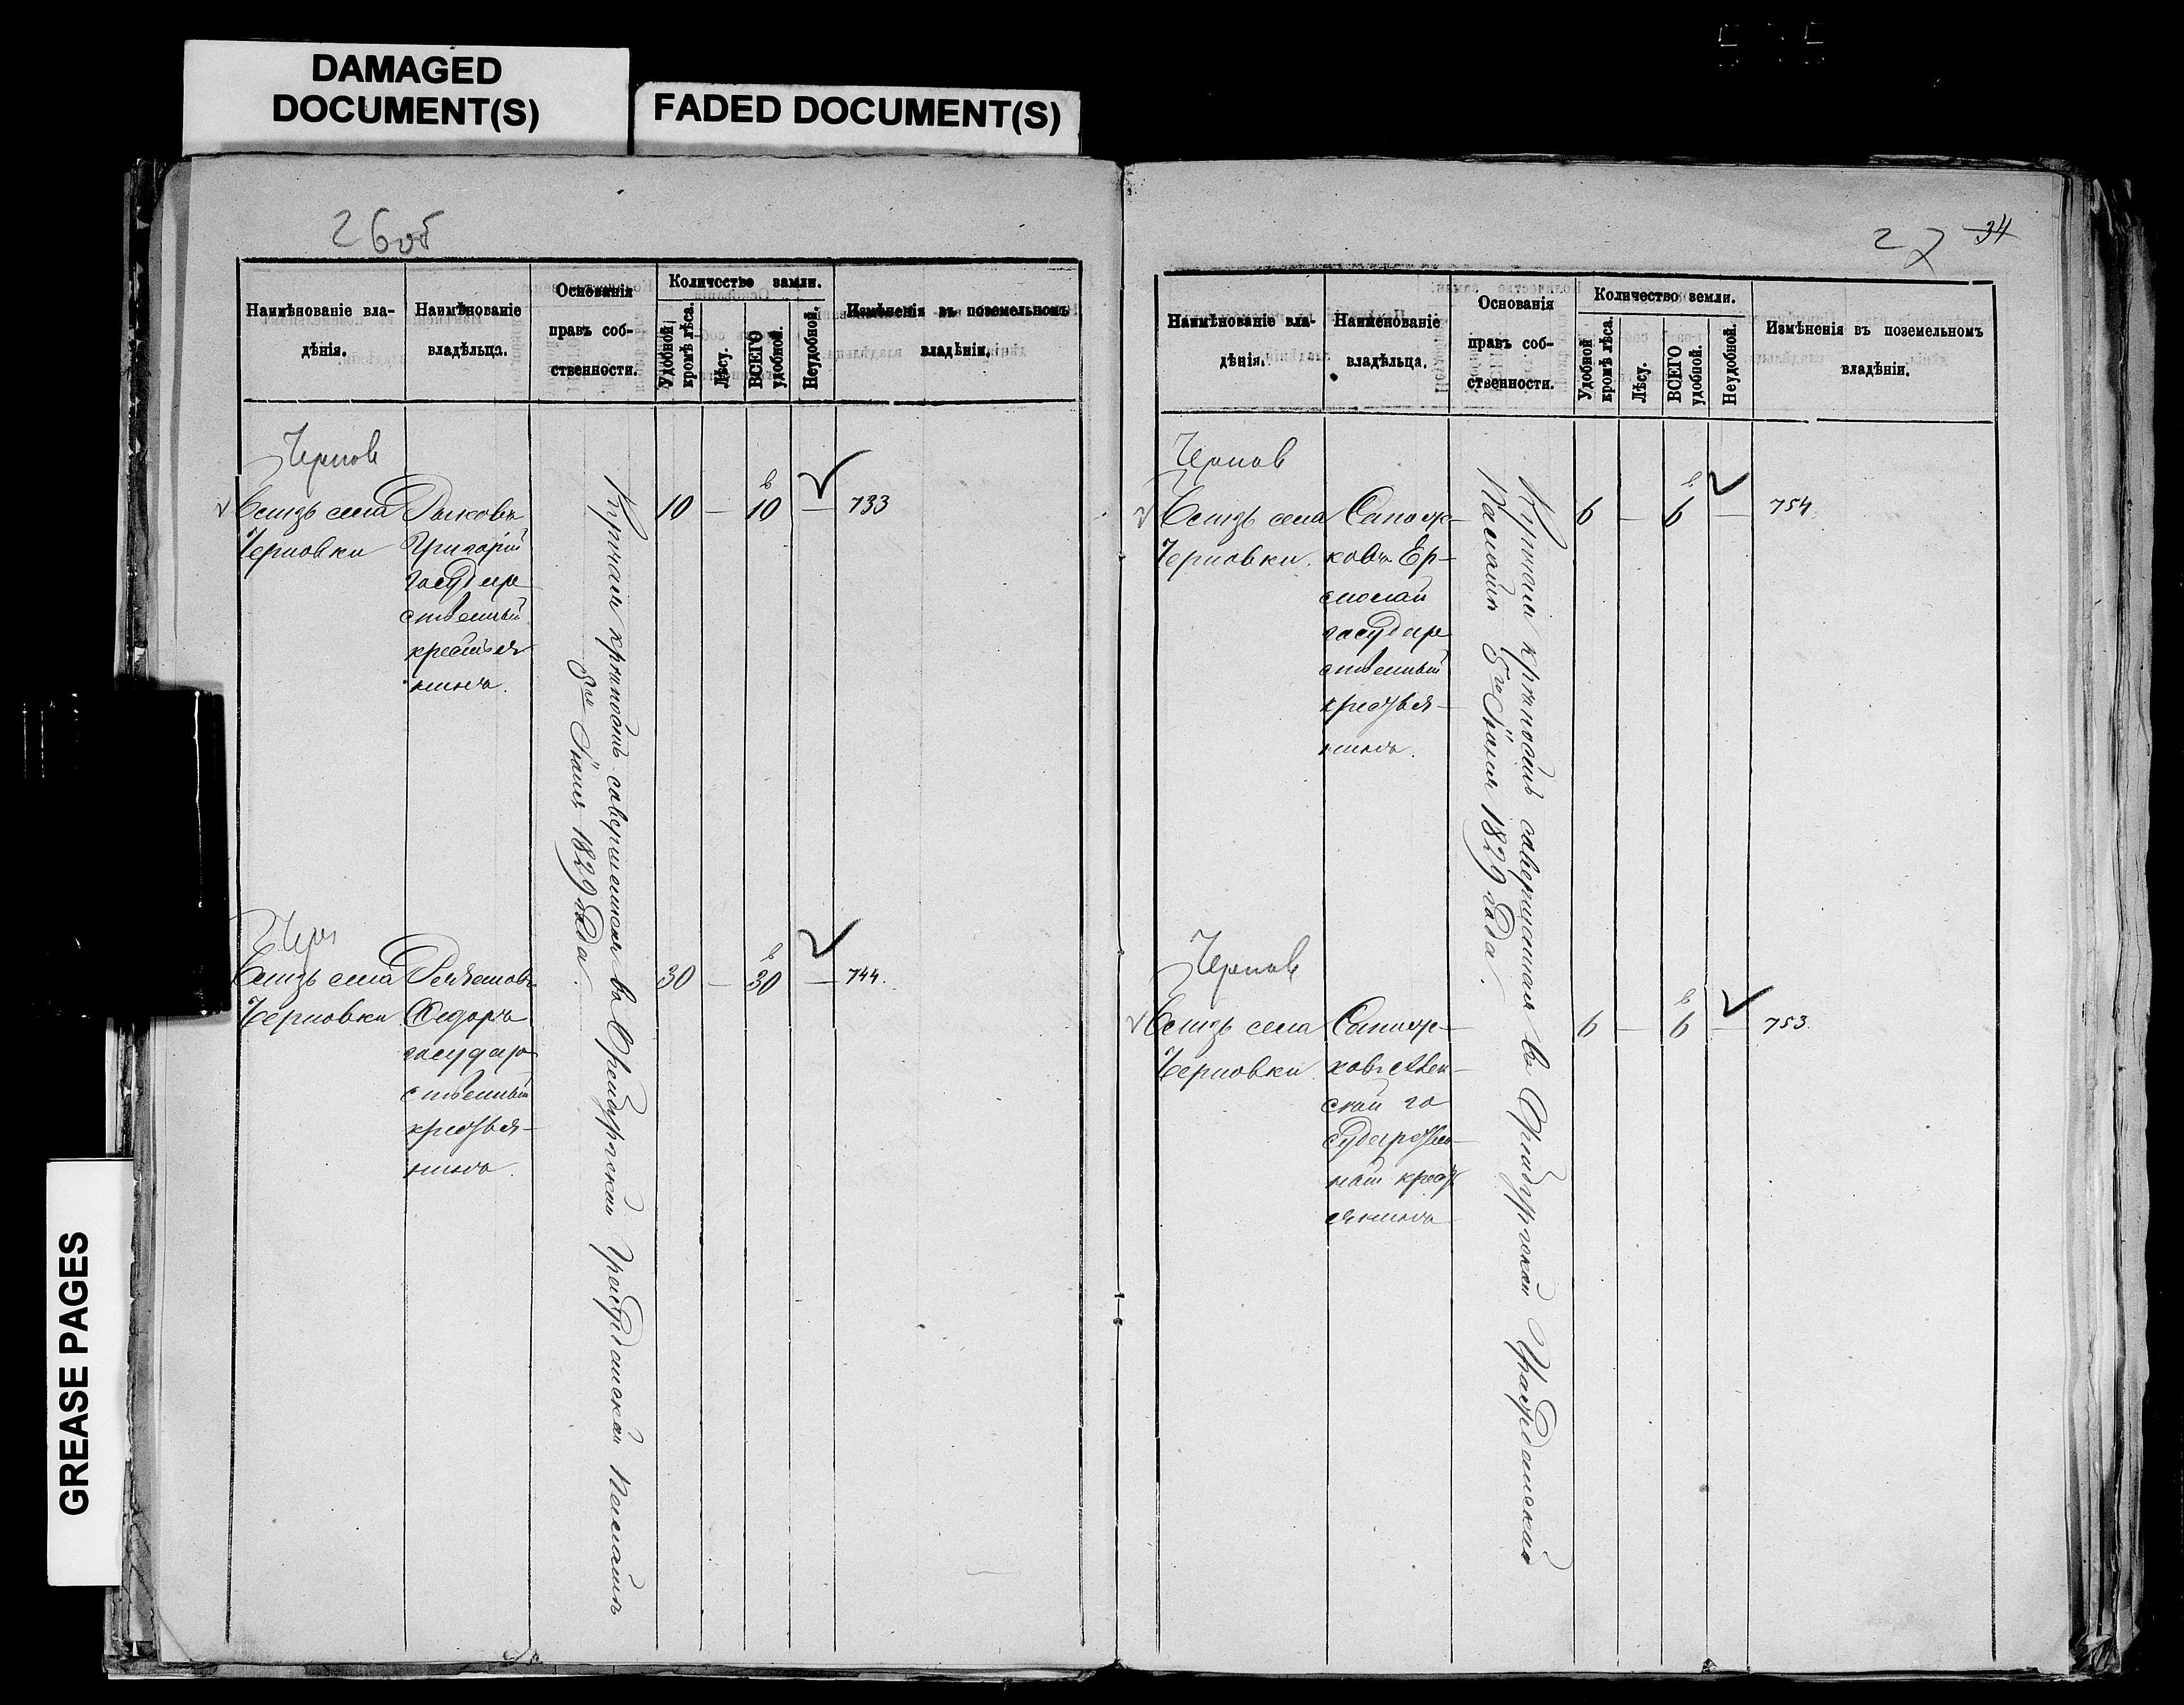 DAMAGED
DOCUMENT(S)
FADED DOCUMENT(S)
GREASE PAGES
26об
Наимѣнованіе вла-
дѣнія.
Наимѣнованіе
владѣльца.
Основанія
правъ соб-
ственности.
Количество земли.
Удобной
кромѣ лѣса.
Лѣсу.
ВСЕГО
удобной.
Неудобной.
Измѣненія въ поземельномъ
владѣніи.
Чернов
близь села
Черновки
Григорій
государ
ственный
крестья
нинъ.
Купчая крѣпость совершенная въ Оренбургской Гражданской Палатѣ
5го 1829 года.
10 — 10 — 733
Чер
близь села
Черновки
Федоръ
государ
ственный
крестья-
нинъ.
30 — 30 — 744.
27 34
Наимѣнованіе вла-
дѣнія.
Наименованіе
владѣльца.
Основанія
правъ соб-
ственности.
Количество земли.
Удобной
кромѣ лѣса.
Лѣсу.
ВСЕГО
удобной.
Неудобной.
Измѣненія въ поземельномъ
владѣніи.
Чернов
близь села
Черновки.
Сапож-
ковъ Ер-
молай
государ
ственный
крестья-
нинъ.
Купчая крѣпость совершенная въ Оренбургской Гражданской
Палатѣ 5го 1829 года.
6 — 6 — 754
Чернов
близь села
Черновки
Сапож-
ковъ
го
сударствен-
ный крест
янинъ
6 — 6 — 753.